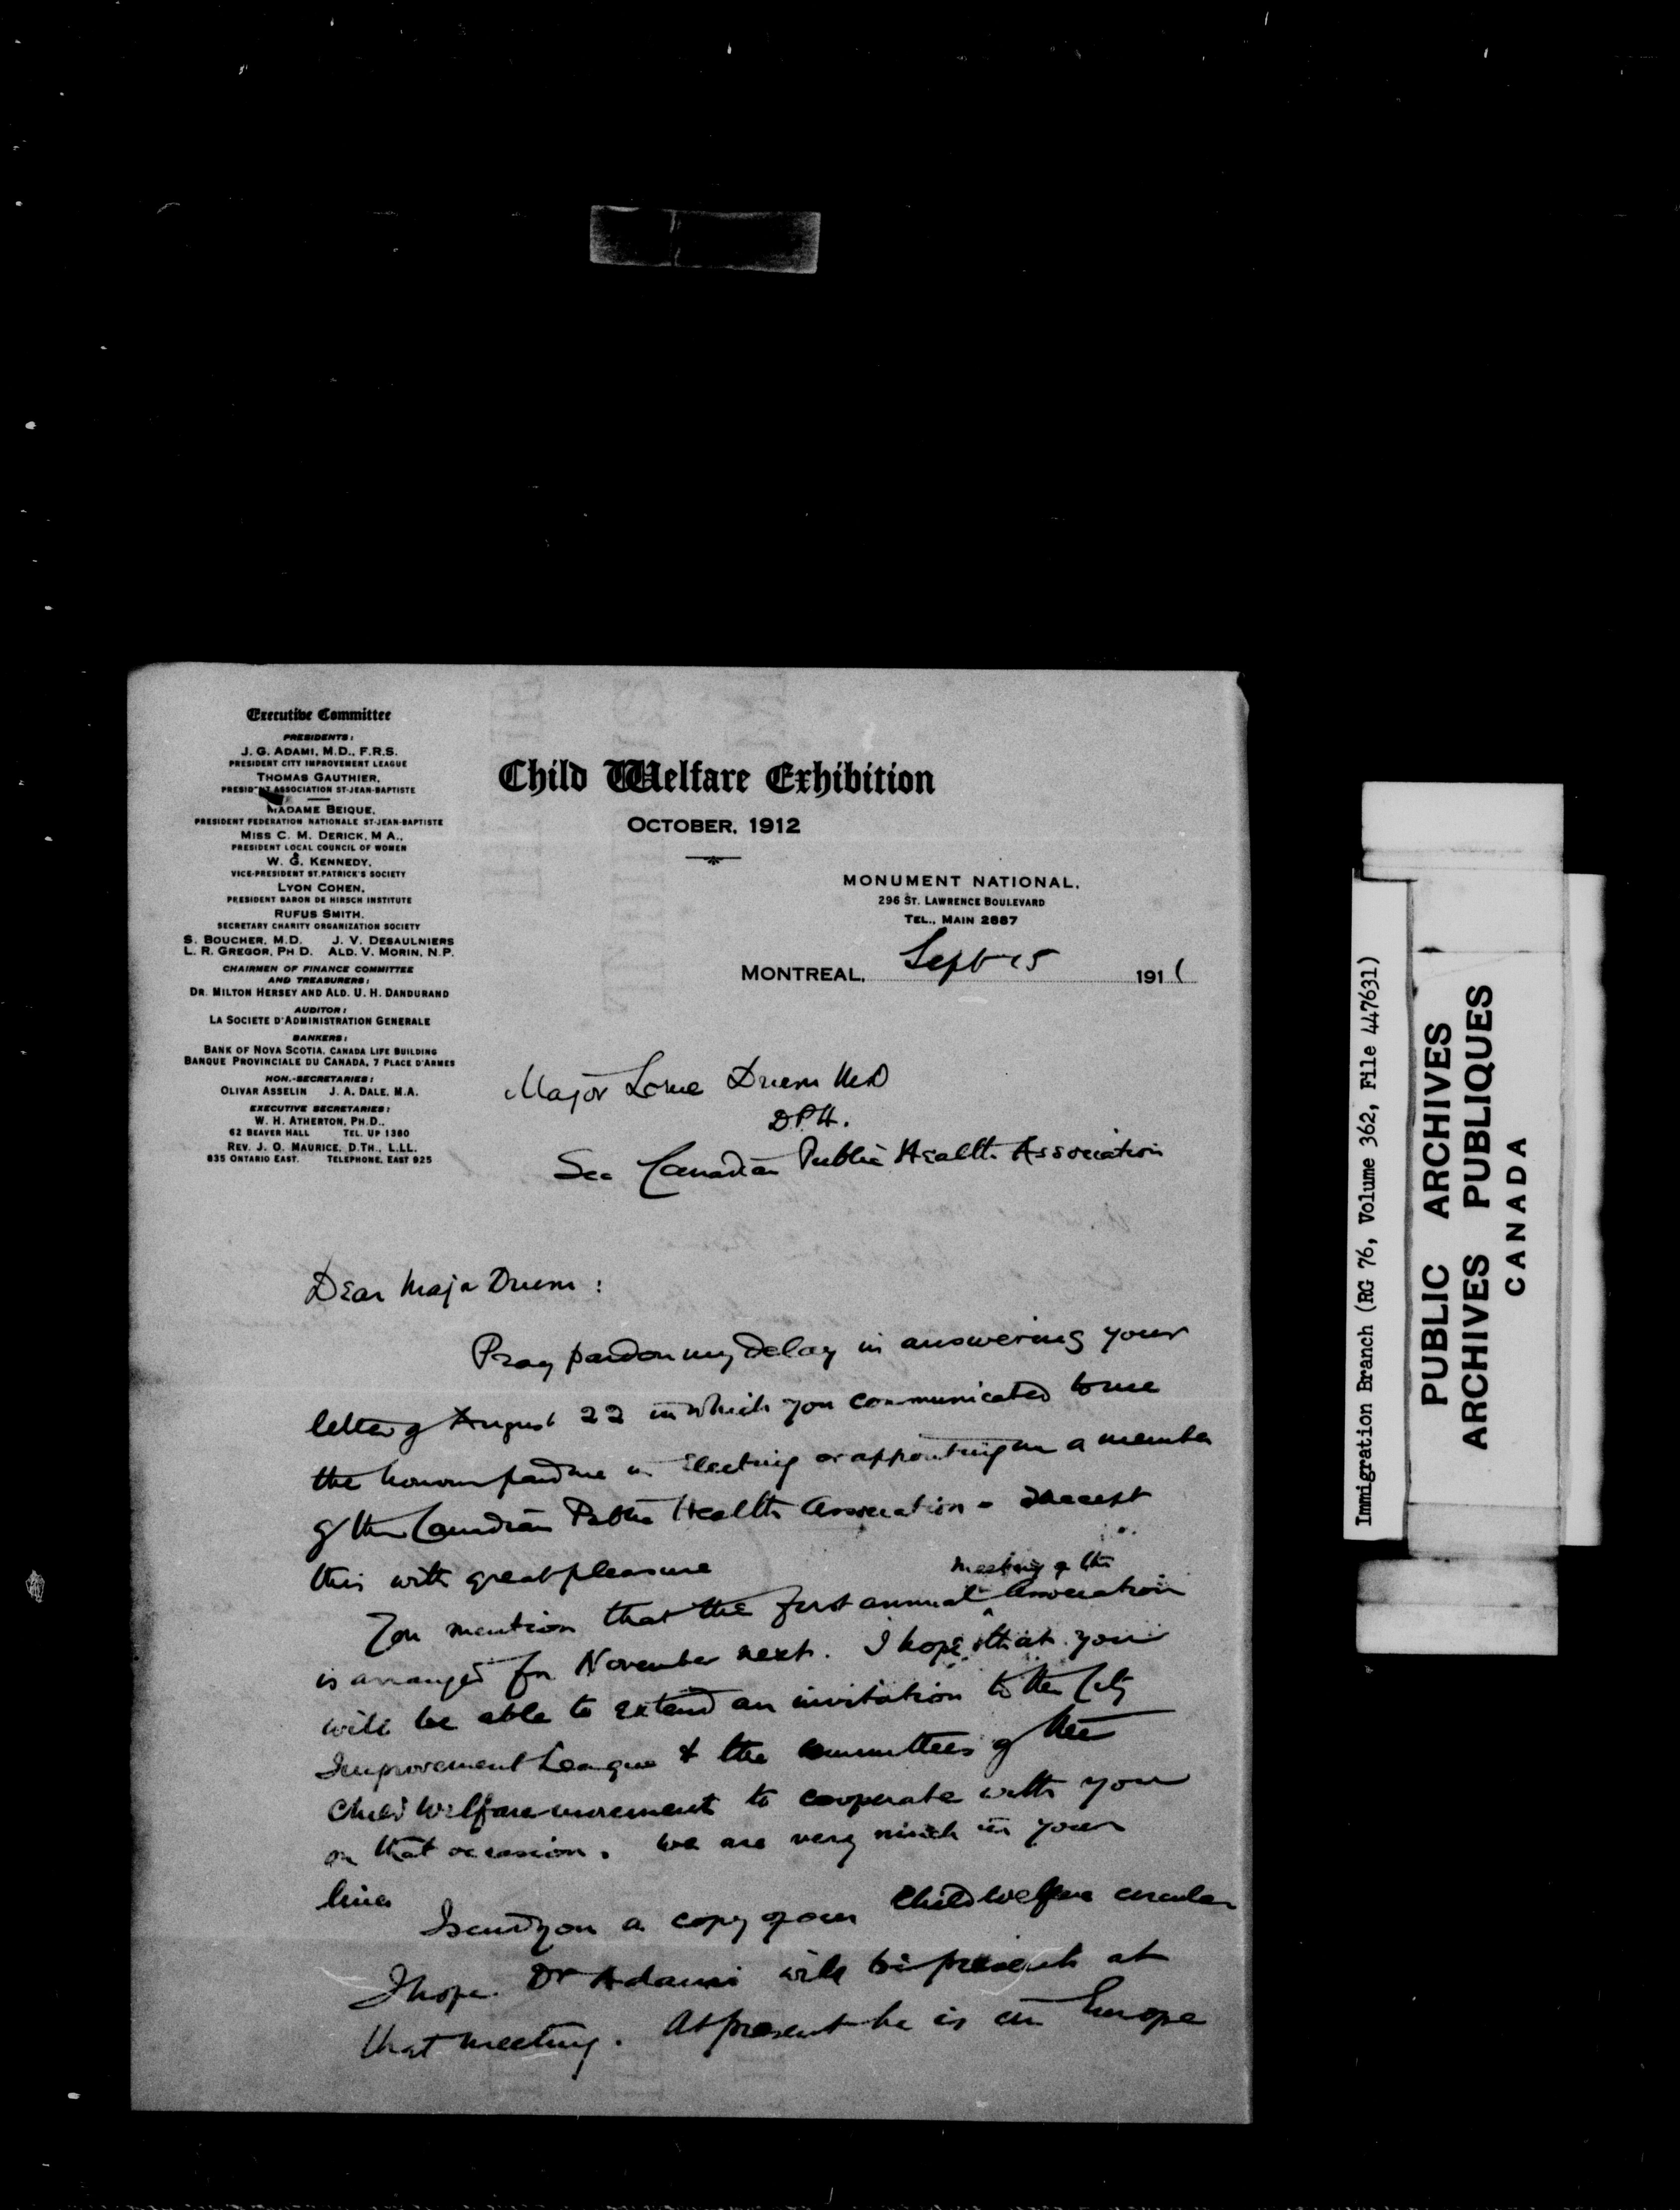 Executive Committee
PRESIDENTS:
J. G. ADAMI, M.D., F.R.S.
PRESIDENT CITY IMPROVEMENT LEAGUE
THOMAS GAUTHIER,
PRESIDENT ASSOCIATION ST-JEAN-BAPTISTE
MADAME BEIQUE,
PRESIDENT FEDERATION NATIONALE ST-JEAN-BAPTISTE
MISS C. M. DERICK, M A.,
PRESIDENT LOCAL COUNCIL OF WOMEN
W. G. KENNEDY,
VICE-PRESIDENT ST. PATRICK'S SOCIETY
LYON COHEN,
PRESIDENT BARON DE HIRSCH INSTITUTE
RUFUS SMITH,
SECRETARY CHARITY ORGANIZATION SOCIETY
S. BOUCHER, M.D. J. V. DESAULNIERS
L. R. GREGOR, PH D. ALD. V. MORIN, N.P.
CHAIRMEN OF FINANCE COMMITTEE
AND TREASURERS:
DR. MILTON HERSEY AND ALD. U. H. DANDURAND
AUDITOR:
LA SOCIETE D'ADMINISTRATION GENERALE
BANKERS:
BANK OF NOVA SCOTIA, CANADA LIFE BUILDING
BANQUE PROVINCIALE DU CANADA, 7 PLACE D'ARMES
HON.-SECRETARIES:
OLIVAR ASSELIN J. A. DALE, M.A.
EXECUTIVE SECRETARIES:
W. H. ATHERTON, PH.D.,
62 BEAVER HALL TEL. UP 1360
REV. J. O. MAURICE, D.TH., L.LL.
835 ONTARIO EAST. TELEPHONE, EAST 925
Child Welfare Exhibition
OCTOBER, 1912
MONUMENT NATIONAL,
296 ST. LAWRENCE BOULEVARD
TEL., MAIN 2687
MONTREAL, Sept 15 1911
Major Lorne Drum MD
D.P.H.
Sec Canadian Public Health Association
Dear Major Drum:
Pray pardon my delay in answering your
letter of August 22 in which you communicated to me
the honour paid me in electing or appointing me a member
of the Canadian Public Health Association - I accept
this with great pleasure
You mention that the first annual meeting of the Association
is arranged for November next. I hope that you
will be able to extend an invitation to the City
Improvement League & the committees of the
Child Welfare movement to cooperate with you
on that occasion. We are very much in your
line
I send you a copy of our Child Welfare circular
I hope Dr Adami will be present at
that meeting. At present he is in Europe
Immigration Branch (RG 76, Volume 362, File 447631)
PUBLIC ARCHIVES
ARCHIVES PUBLIQUES
CANADA